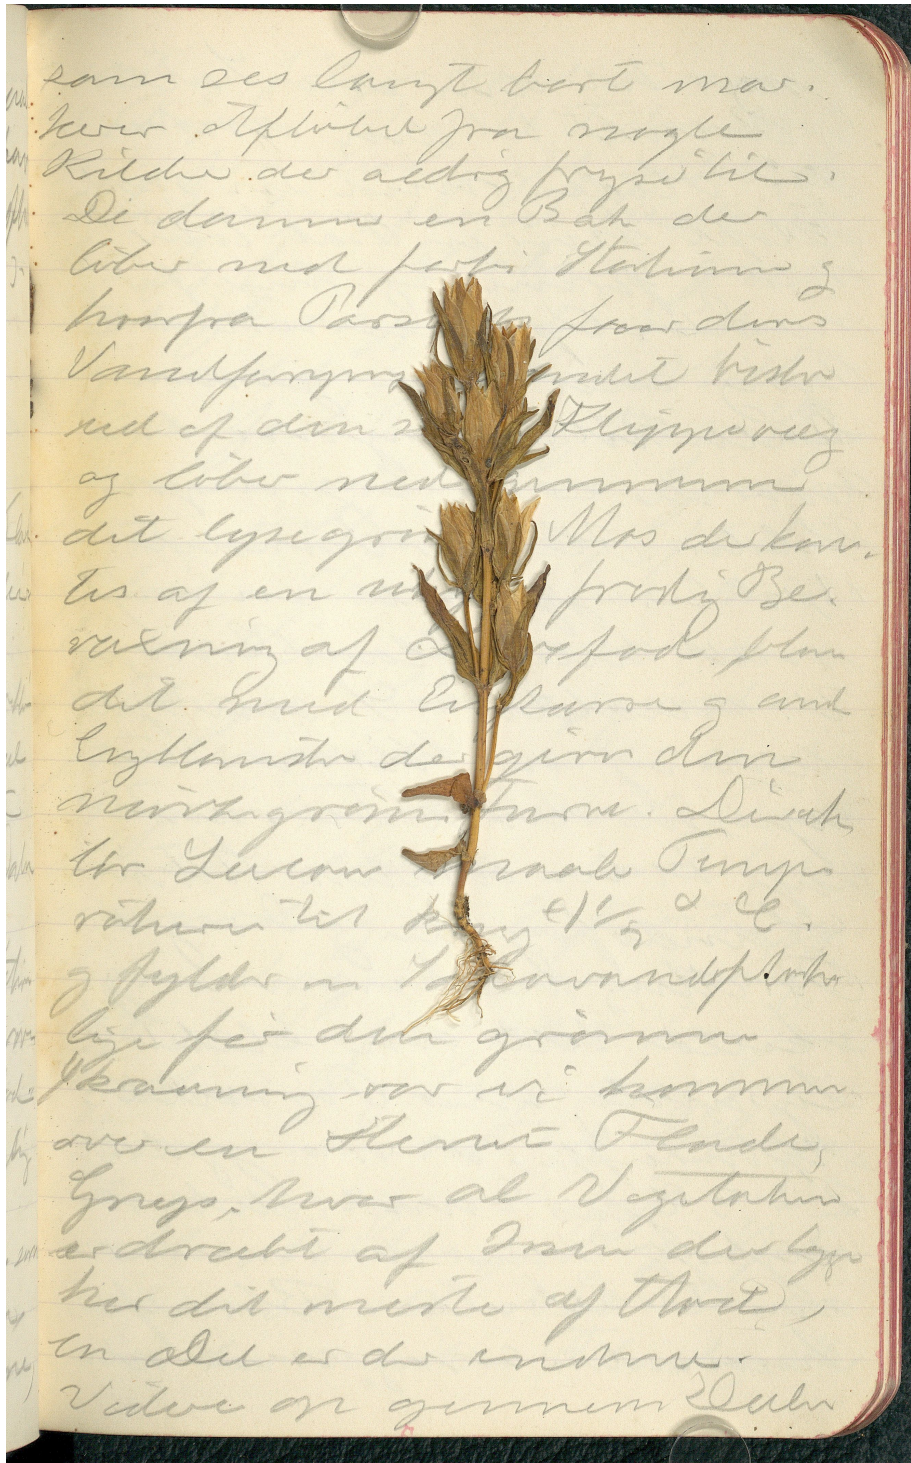 som ses langt bort mar-
kerer Afløbet fra nogle
Kilder der aldrig fryser til.
De danner en Bæk der
løber ned forbi Stationen og
hvorfra faar deres
Vandforsyning. Vandet vister
ud af den Klippevæg
og løber ned gennem
det lysegrønne Mos der kan-
tes af en meget frodig Be-
voksning af Løvefod blan
det med Engkarse og andre
der giver den
mørkegrønne Farve. Direk
tør maalte Tempe
raturen til °C.
og fylder en Sodavandsflaske
lige før den grønne
Skraaning var vi kommen
over en stenet Flade,
Gneys, hvor al Vegetation
er dræbt af Isen der ligge
her det meste af Aaret,
en Del er der endnu.
Videre op gennem Dalen